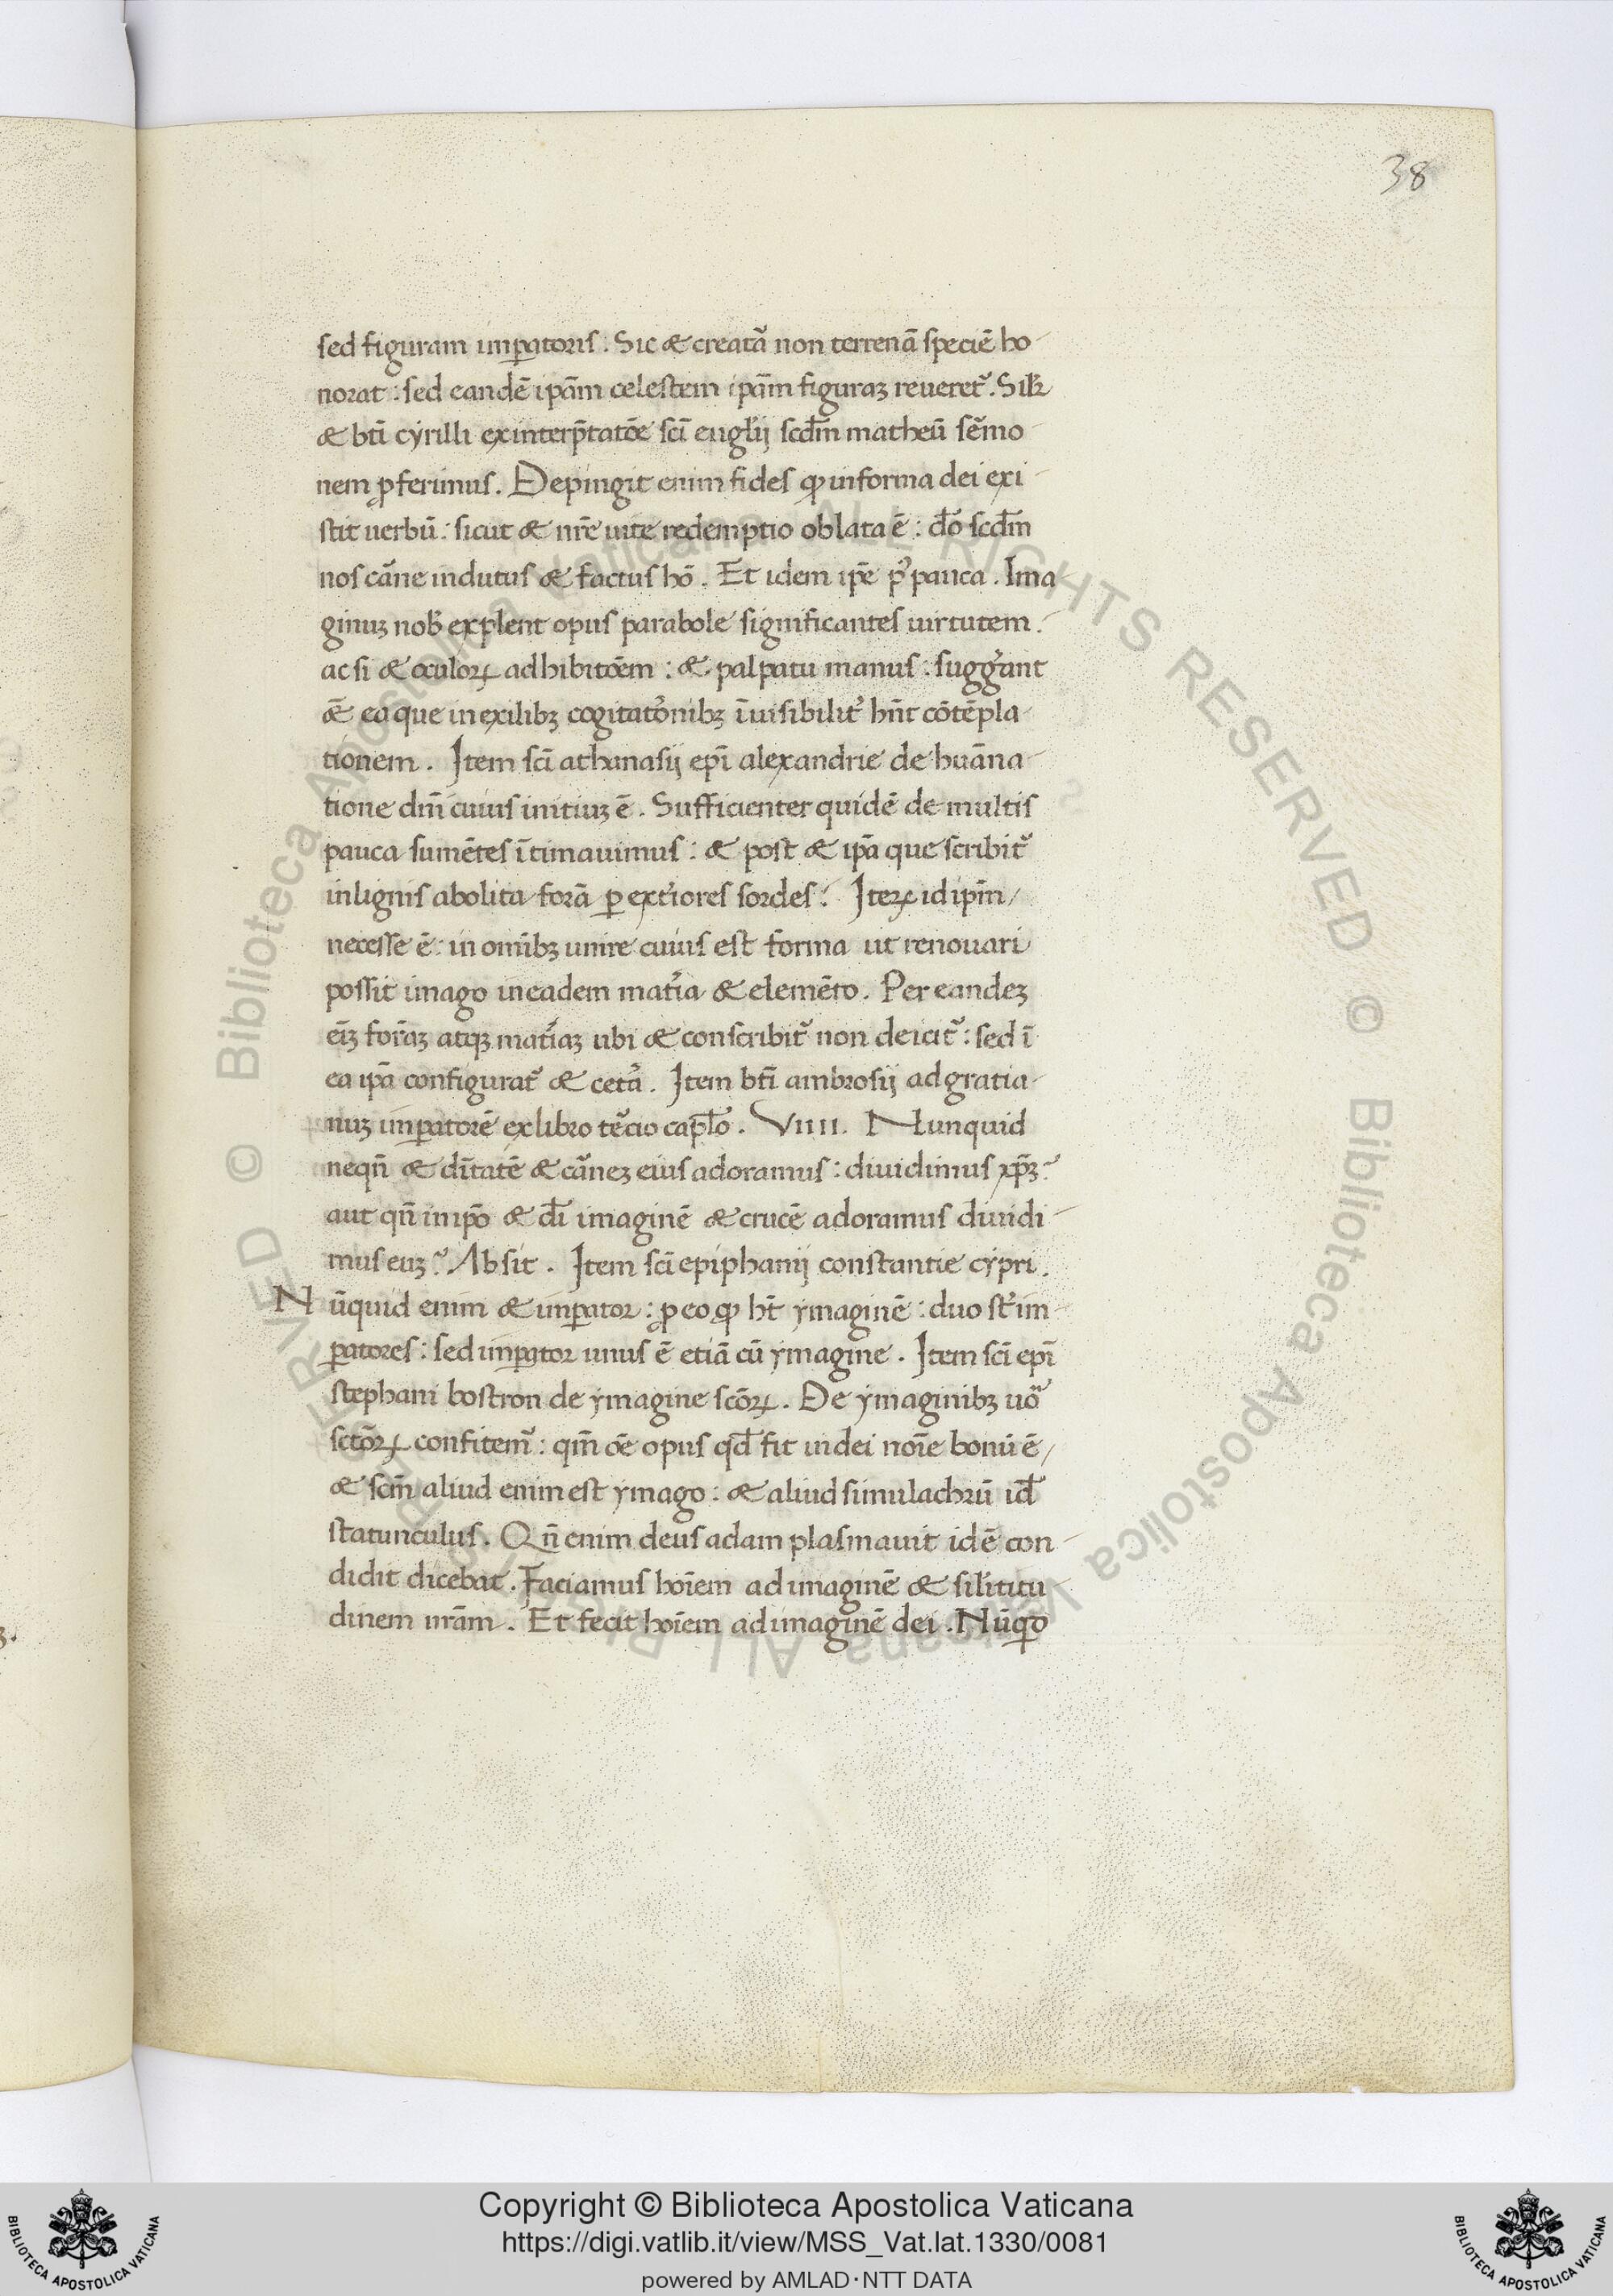 38
sed figuram imꝑatoris. Sic & creatã non terrenã speciẽ ho
norat: sed eandẽ ipãm celestem ipãm figuraꝫ reueret᷑. Silr̃
& bti᷑ cẏrilli exinterp̃tatõe sci᷑ euglij scd᷑m matheũ sẽmo
nem ꝓferimus. Depingit enim fides ꝙ informa dei exi
stit uerbũ: sicut & nr̃e uite redemptio oblata ẽ: dõ scd᷑m
nos cãne indutus & factus hõ. Et idem ip̃e p᷑ pauca. Ima
ginuꝫ nob᷑ explent opus parabole significantes uirtutem.
ac si & oculoꝝ adhibitõem: & palpatu manus: sugg᷑unt
&̃ ea que in exilibꝫ cogitatõnibꝫ ĩuisibilit᷑ hñt cõtẽpla
tionem. Item sci᷑ athanasij epi᷑ alexandrie de huãna
tione dni᷑ cuius initiuꝫ ẽ. Sufficienter quidẽ de multis
pauca sumẽtes ĩtimauimus: & post & ip̃a que scribit᷑
inlignis abolita forã ꝑ ext᷑iores sordes. Iteꝝ idip̃m
necesse ẽ: in omĩbꝫ unire cuius est forma ut renouari
possit imago ineadem mat᷑ia & elemẽto. Per eandeꝫ
eĩꝫ forãꝫ atqꝫ mat᷑iaꝫ ubi & conscribit᷑ non deicit᷑: sed ĩ
ea ip̃a configurat᷑ & cet᷑a. Item bti᷑ ambrosij ad gratia
nuꝫ imꝑatorẽ exlibro tẽcio cap̃lo. VIIII. Nunquid
neqñ & dĩtatẽ & cãneꝫ eius adoramus: diuidimus xp̃ꝫ?
aut qñ imp̃o & di᷑ imaginẽ & crucẽ adoramus diuidi
mus euꝫ? Absit. Item sci᷑ epiphanij constantie cẏpri.
Nũquid enim & imꝑator: ꝓ eo ꝙ ht᷑ ẏmaginẽ: duo st᷑ im
ꝑatores: sed imꝑator unus ẽ etiã cũ ẏmagine. Item sci᷑ epi᷑
stephani bostron de ẏmagine scõꝝ. De ẏmaginibꝫ uõ
sctõꝝ confitem᷑: qm̃ õe opus qd᷑ fit in dei noĩe bonũ ẽ
& scm̃ aliud enim est ẏmago: & aliud simulachrũ id᷑
statunculus. Qñ enim deus adam plasmauit idẽ con
didit dicebat. Faciamus hoĩem ad imaginẽ & silitĩtu
dinem nrãm. Et fecit hoĩem ad imaginẽ dei. Nũqͥd
Copyright © Biblioteca Apostolica Vaticana
https://digi.vatlib.it/view/MSS_Vat.lat.1330/0081
powered by AMLAD·NTT DATA
BIBLIOTECA APOSTOLICA VATICANA
BIBLIOTECA APOSTOLICA VATICANA
© Biblioteca Apostolica Vaticana ALL RIGHTS RESERVED
© Biblioteca Apostolica Vaticana ALL RIGHTS RESERVED